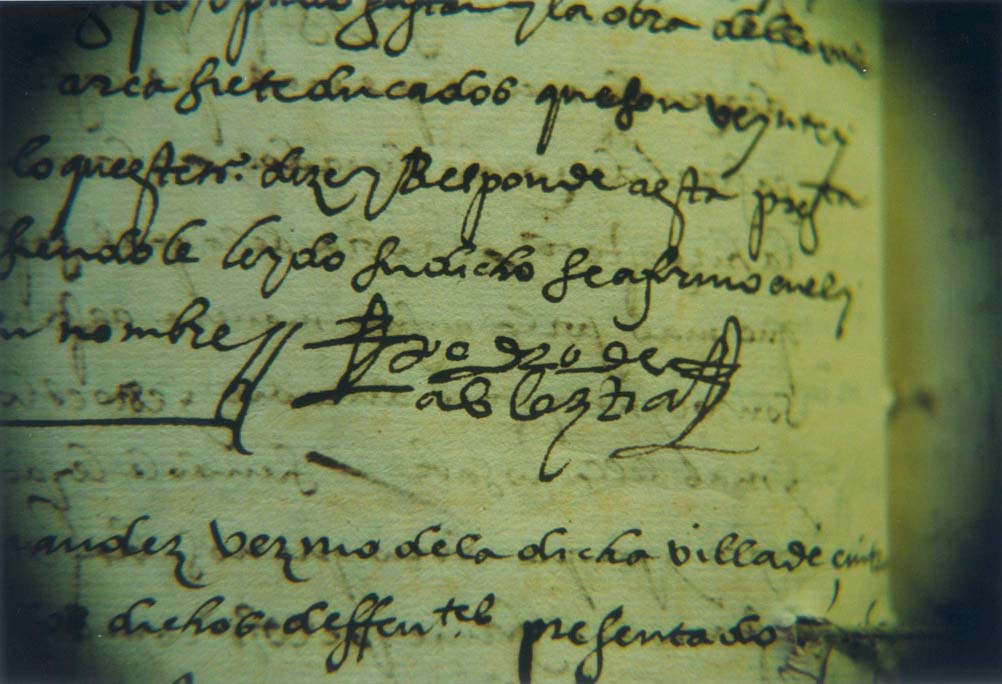 y la obra della
arca siete ducados que son veynte y
lo que este tno. dize y Responde a esta pregta
siendole leydo su dicho se afirmo en el y
nombre
Po de
ableytia
andez vezino de la dicha villa de
dichos deffentes presentado